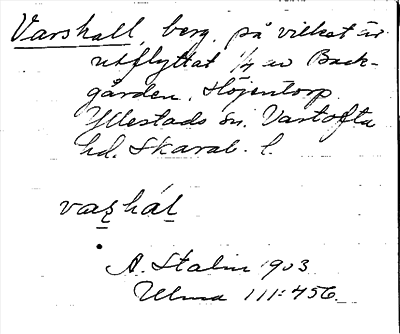 Varshall, berg, på vilket är
utflyttat 1/4 av Back-
gården, Höjentorp
Yllestads sn. Vartofta
hd. Skarab. l.
vaṣhál
A. Stalin 1903
Ulma 111:456.